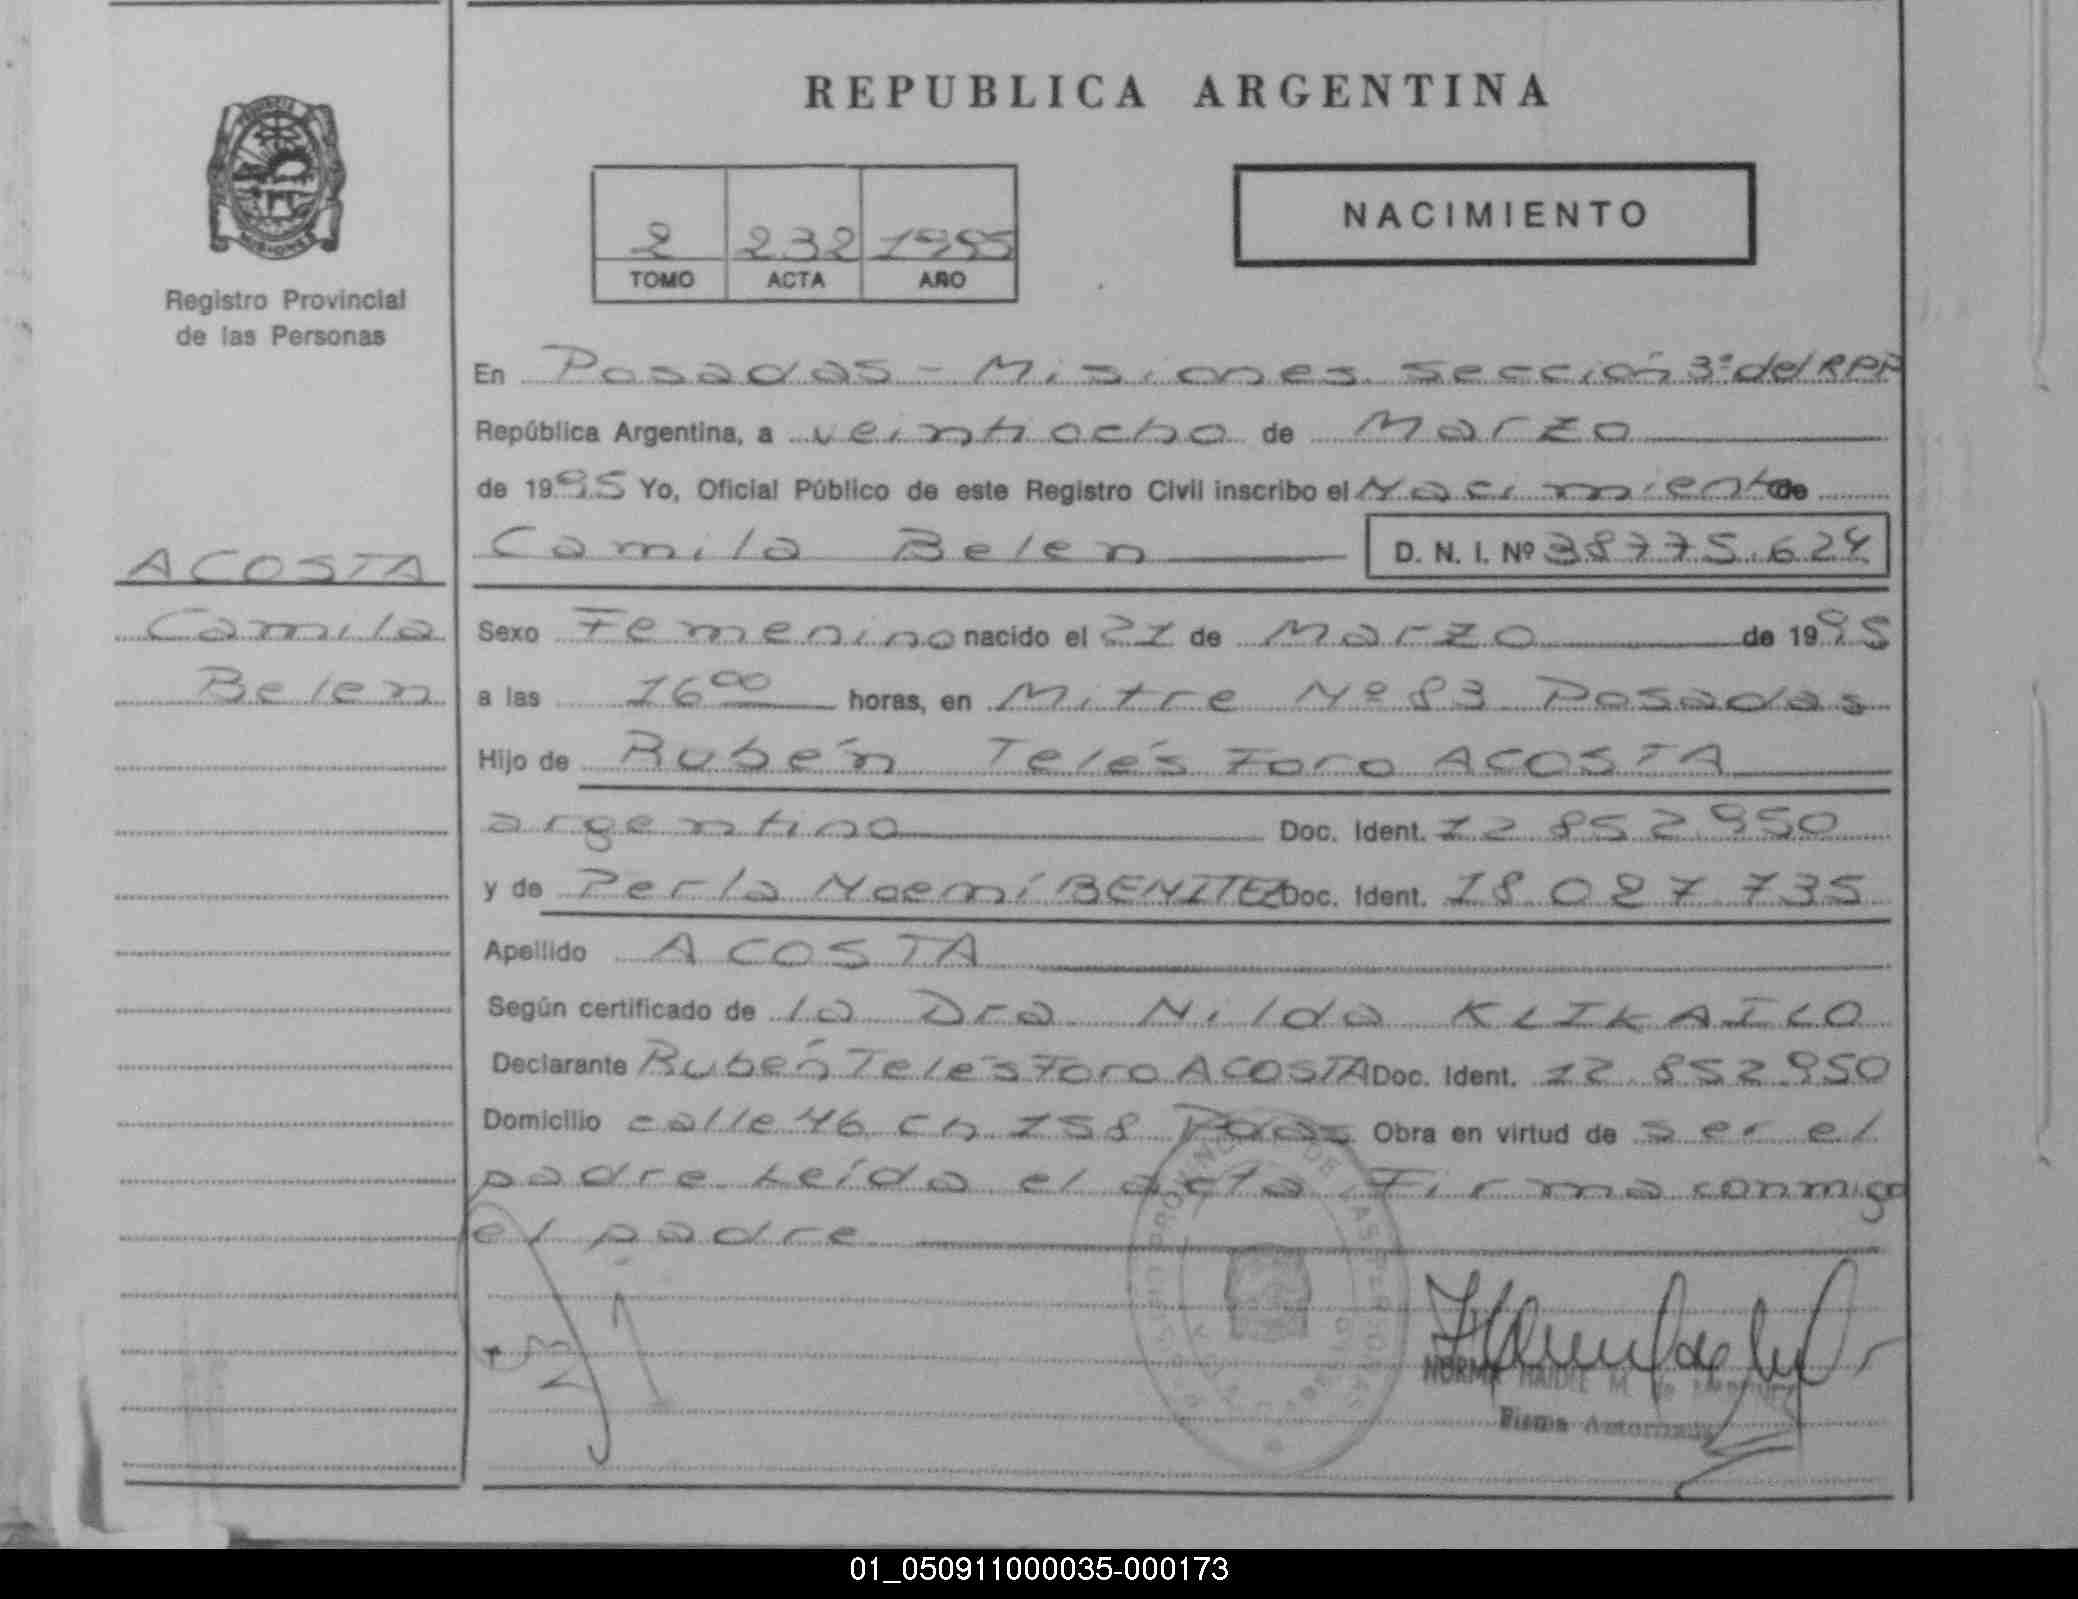 REPUBLICA ARGENTINA
NACIMIENTO
2 232 1995
TOMO ACTA AÑO
Registro Provincial
de las Personas
En Posadas - Misiones Sección 3ª del RPP
República Argentina, a veintiocho de Marzo
de 1995 Yo, Oficial Público de este Registro Civil inscribo el Nacimiento de
Camila Belen D. N. I. Nº 38775.624
ACOSTA
Camila
Belen
Sexo Femenino nacido el 21 de Marzo de 1995
a las 16 00 horas, en Mitre Nº 83 Posadas
Hijo de Rubén Telésforo ACOSTA
argentino Doc. Ident. 12 852 950
y de Perla Noemí BENITEZ Doc. Ident. 18 027 735
Apellido ACOSTA
Según certificado de la Dra Nilda KLIKAILO
Declarante Rubén Telésforo ACOSTA Doc. Ident. 12 852 950
Domicilio calle 46 ch 158 Obra en virtud de ser el
padre Leída el acta Firma conmigo
el padre
NORMA HAIDEE M. de
Firma Autorizada
01_050911000035-000173